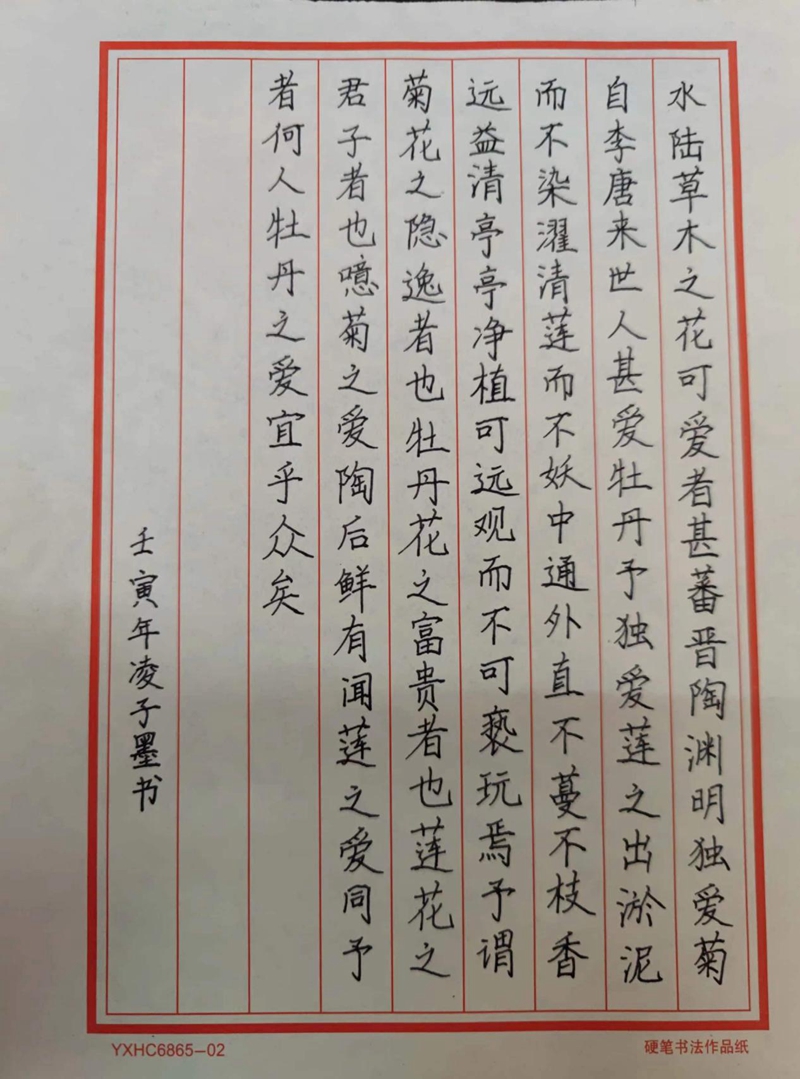 水陆草木之花可爱者甚蕃晋陶渊明独爱菊
自李唐来世人甚爱牡丹予独爱莲之出淤泥
而不染濯清莲而不妖中通外直不蔓不枝香
远益清亭亭净植可远观而不可亵玩焉予谓
菊花之隐逸者也牡丹花之富贵者也莲花之
君子者也噫菊之爱陶后鲜有闻莲之爱同予
者何人牡丹之爱宜乎众矣
壬寅年凌子墨书
YXHC6865-02
硬笔书法作品纸